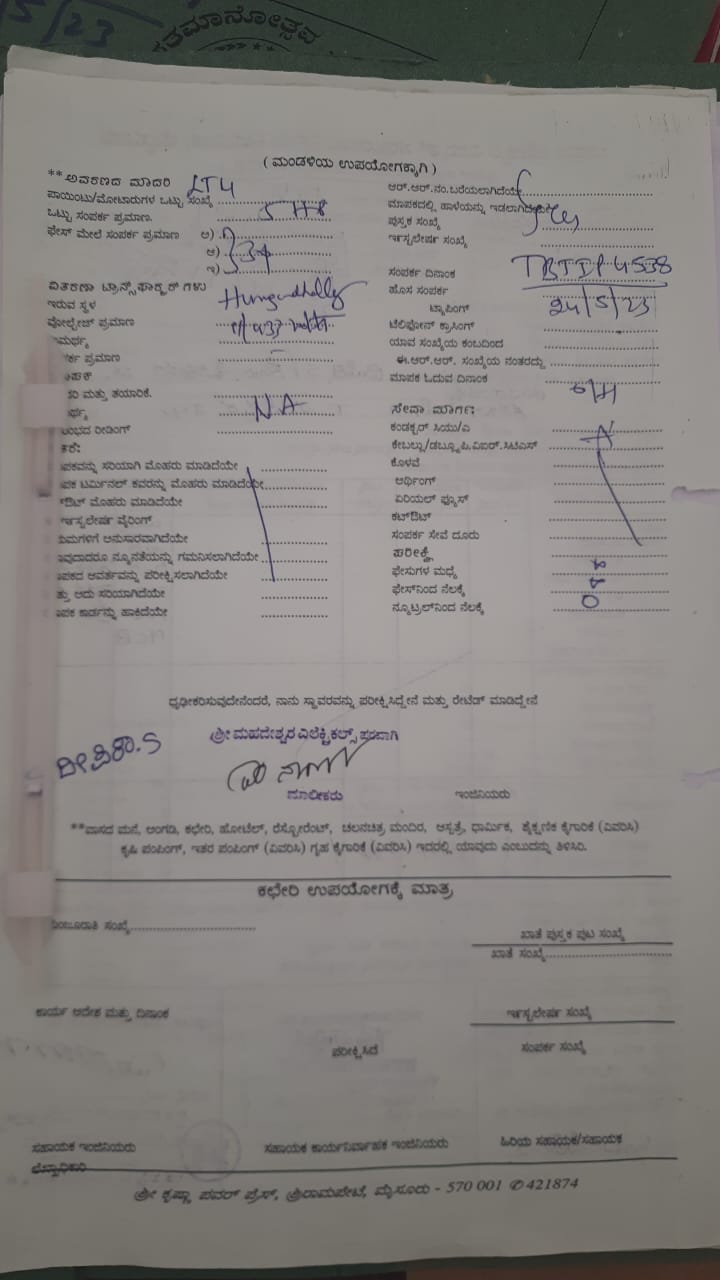 5/23
ತಮಾನೋತ್ಸವ
( ಮಂಡಳಿಯ ಉಪಯೋಗಕ್ಕಾಗಿ )
**ಅವರಣದ ಮಾದರಿ LT4
ಪಾಯಿಂಟು/ಮೋಟಾರುಗಳ ಒಟ್ಟು ಸಂಖ್ಯೆ
ಒಟ್ಟು ಸಂಪರ್ಕ ಪ್ರಮಾಣ. 5 HP
ಫೇಸ್ ಮೇಲೆ ಸಂಪರ್ಕ ಪ್ರಮಾಣ ಅ)
ಆ)
ಇ)
ವಿತರಣಾ ಟ್ರಾನ್ಸ್‌ಫಾರ್ಮರ್ ಗಳು
ಇರುವ ಸ್ಥಳ
ವೋಲ್ಟೇಜ್ ಪ್ರಮಾಣ
ಾಮರ್ಥ್ಯ
ರ್ಕ ಪ್ರಮಾಣ
ಾಪಕ
ಸಿ ಮತ್ತು ತಯಾರಿಕೆ.
ರ್ಥ್ಯ NA
ಂಭದ ರೀಡಿಂಗ್
ಕೆ:
ಪಕವನ್ನು ಸರಿಯಾಗಿ ಮೊಹರು ಮಾಡಿದೆಯೇ
ಪಕ ಟರ್ಮಿನಲ್ ಕವರನ್ನು ಮೊಹರು ಮಾಡಿದೆಯೇ
ಔಟ್ ಮೊಹರು ಮಾಡಿದೆಯೇ
ಇನ್ಸ್ಟಲೇಷನ್ ವೈರಿಂಗ್
ಯಮಗಳಿಗೆ ಅನುಸಾರವಾಗಿದೆಯೇ
ಾವುದಾದರೂ ನ್ಯೂನತೆಯನ್ನು ಗಮನಿಸಲಾಗಿದೆಯೇ
ಪಕದ ಆವರ್ತವನ್ನು ಪರೀಕ್ಷಿಸಲಾಗಿದೆಯೇ
ತ್ತು ಅದು ಸರಿಯಾಗಿದೆಯೇ
ಪಕ ಕಾರ್ಡನ್ನು ಹಾಕಿದೆಯೇ
ಆರ್.ಆರ್.ನಂ.ಬರೆಯಲಾಗಿದೆಯೇ
ಮಾಪಕದಲ್ಲಿ ಹಾಳೆಯನ್ನು ಇಡಲಾಗಿದೆಯೇ
ಪುಸ್ತಕ ಸಂಖ್ಯೆ
ಇನ್ಸ್ಟಲೇಷನ್ ಸಂಖ್ಯೆ
ಸಂಪರ್ಕ ದಿನಾಂಕ TBTIP 4538
ಹೊಸ ಸಂಪರ್ಕ 24/5/23
ಟ್ಯಾಪಿಂಗ್
ಟೆಲಿಫೋನ್ ಕ್ರಾಸಿಂಗ್
ಯಾವ ಸಂಖ್ಯೆಯ ಕಂಬದಿಂದ
ಈ.ಆರ್.ಆರ್. ಸಂಖ್ಯೆಯ ನಂತರದ್ದು
ಮಾಪಕ ಓದುವ ದಿನಾಂಕ
O/H
ಸೇವಾ ಮಾರ್ಗ:
ಕಂಡಕ್ಟರ್ ಸಿಯು/ಎ
ಕೇಬಲ್ಲು/ಡಬ್ಲ್ಯೂ.ಪಿ.ವಿಐಆರ್.ಸಿಟಿಎಸ್
ಕೊಳವೆ
ಅರ್ಥಿಂಗ್
ಏರಿಯಲ್ ಫ್ಯೂಸ್
ಕಟ್ಔಟ್
ಸಂಪರ್ಕ ಸೇವೆ ದೂರು
ಪರೀಕ್ಷೆ
ಫೇಸುಗಳ ಮಧ್ಯೆ
ಫೇಸ್‌ನಿಂದ ನೆಲಕ್ಕೆ
ನ್ಯೂಟ್ರಲ್‌ನಿಂದ ನೆಲಕ್ಕೆ 0
ಧೃಢೀಕರಿಸುವುದೇನೆಂದರೆ, ನಾನು ಸ್ಥಾವರವನ್ನು ಪರೀಕ್ಷಿಸಿದ್ದೇನೆ ಮತ್ತು ರೇಟೆಡ್ ಮಾಡಿದ್ದೇನೆ
ಶ್ರೀ ಮಹದೇಶ್ವರ ಎಲೆಕ್ಟ್ರಿಕಲ್ಸ್ ಪರವಾಗಿ
ಮಾಲೀಕರು ಇಂಜಿನಿಯರು
**ವಾಸದ ಮನೆ, ಅಂಗಡಿ, ಕಛೇರಿ, ಹೋಟೆಲ್, ರೆಸ್ಟೋರೆಂಟ್, ಚಲನಚಿತ್ರ ಮಂದಿರ, ಆಸ್ಪತ್ರೆ, ಧಾರ್ಮಿಕ, ಶೈಕ್ಷಣಿಕ ಕೈಗಾರಿಕೆ (ವಿವರಿಸಿ)
ಕೃಷಿ ಪಂಪಿಂಗ್, ಇತರ ಪಂಪಿಂಗ್ (ವಿವರಿಸಿ) ಗೃಹ ಕೈಗಾರಿಕೆ (ವಿವರಿಸಿ) ಇದರಲ್ಲಿ ಯಾವುದು ಎಂಬುದನ್ನು ತಿಳಿಸಿರಿ.
ಕಛೇರಿ ಉಪಯೋಗಕ್ಕೆ ಮಾತ್ರ
ಮಂಜೂರಾತಿ ಸಂಖ್ಯೆ
ಖಾತೆ ಪುಸ್ತಕ ಪುಟ ಸಂಖ್ಯೆ
ಖಾತೆ ಸಂಖ್ಯೆ
ಕಾರ್ಯ ಆದೇಶ ಮತ್ತು ದಿನಾಂಕ
ಇನ್ಸ್ಟಲೇಷನ್ ಸಂಖ್ಯೆ
ಪರೀಕ್ಷಿಸಿದ
ಸಂಪರ್ಕ ಸಂಖ್ಯೆ
ಸಹಾಯಕ ಇಂಜಿನಿಯರು ಸಹಾಯಕ ಕಾರ್ಯನಿರ್ವಾಹಕ ಇಂಜಿನಿಯರು ಹಿರಿಯ ಸಹಾಯಕ/ಸಹಾಯಕ
ಲೆಕ್ಕಾಧಿಕಾರಿ
ಶ್ರೀ ಕೃಷ್ಣಾ ಪವರ್ ಪ್ರೆಸ್, ಶ್ರೀರಾಮಪೇಟೆ, ಮೈಸೂರು - 570 001 ✆ 421874